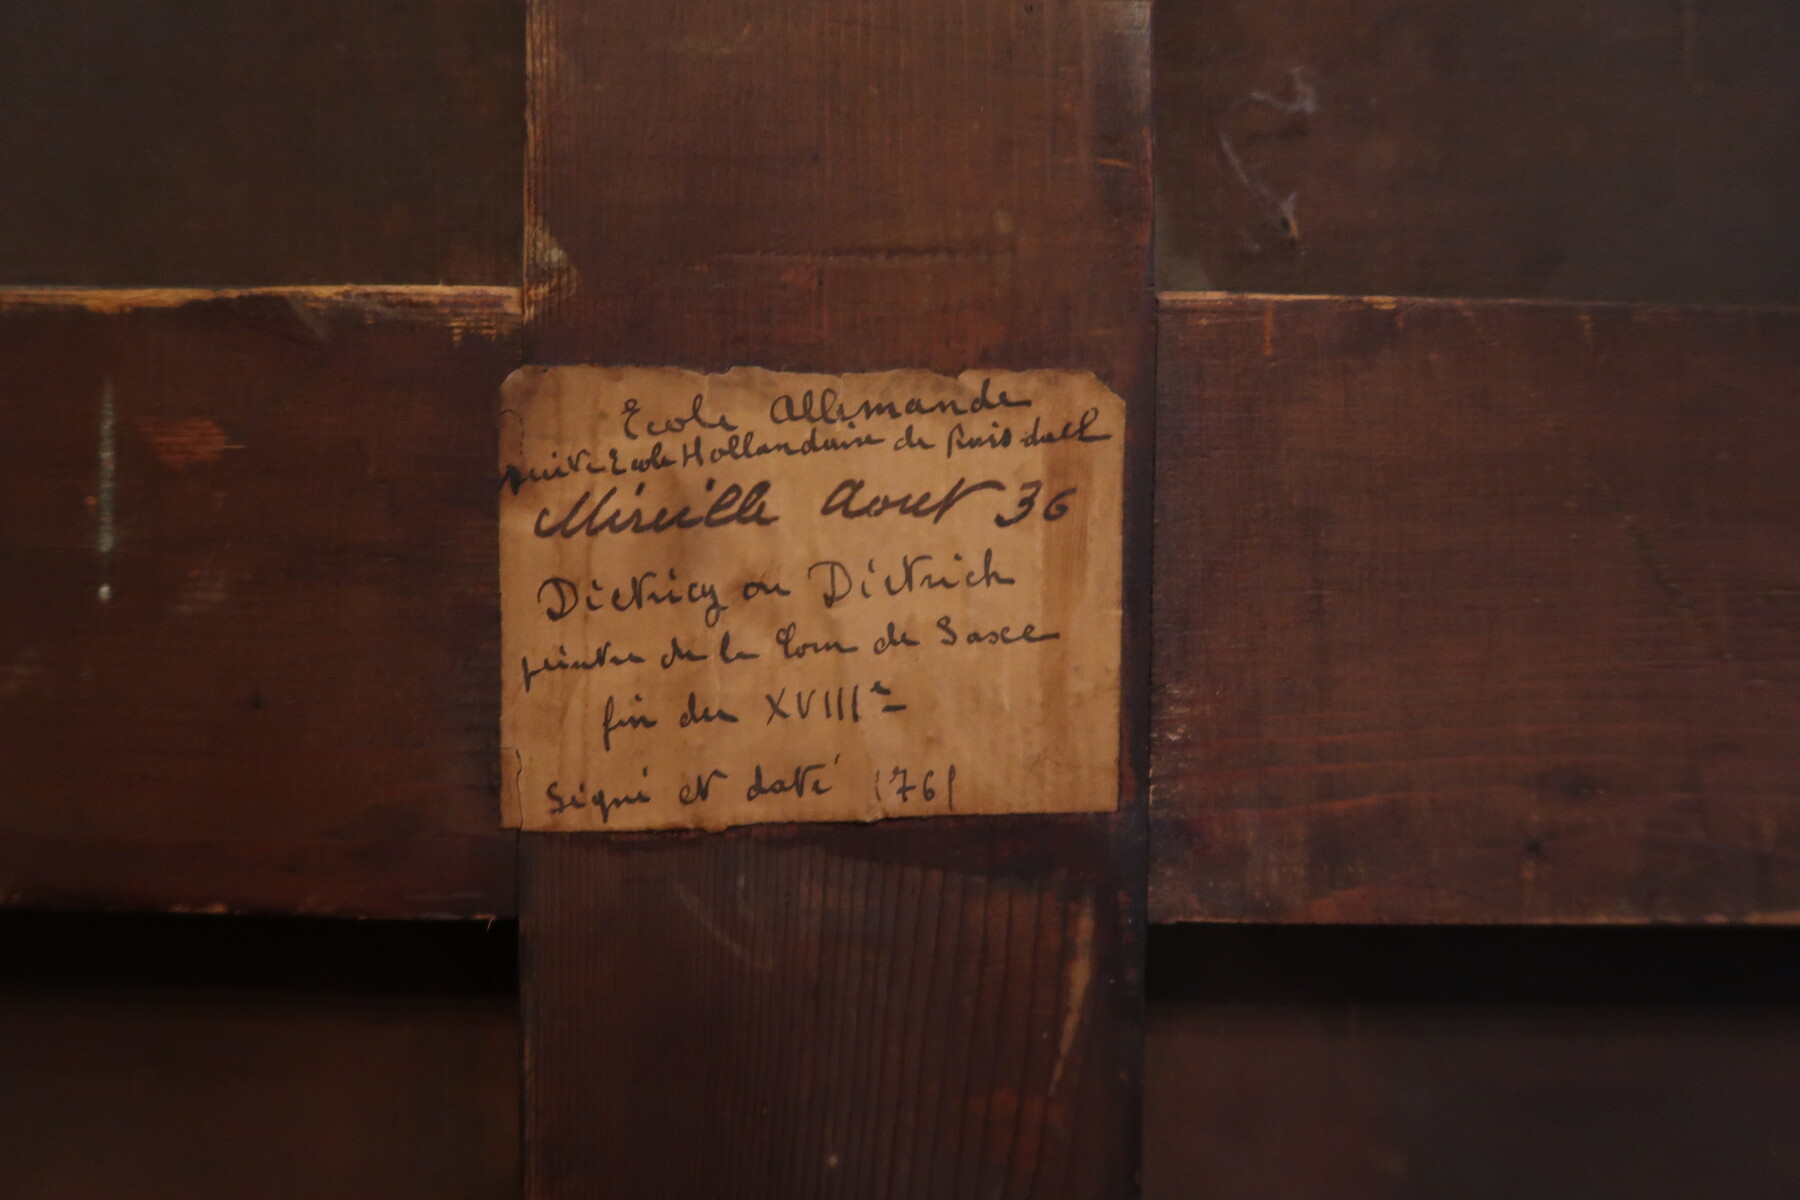 Ecole Allemande
suite Ecole Hollandaise de Ruisdaell
Mireille Aout 36
Dietricy ou Dietrich
peintre de la Cour de Saxe
fin du XVIIIe
Signé et daté 1761